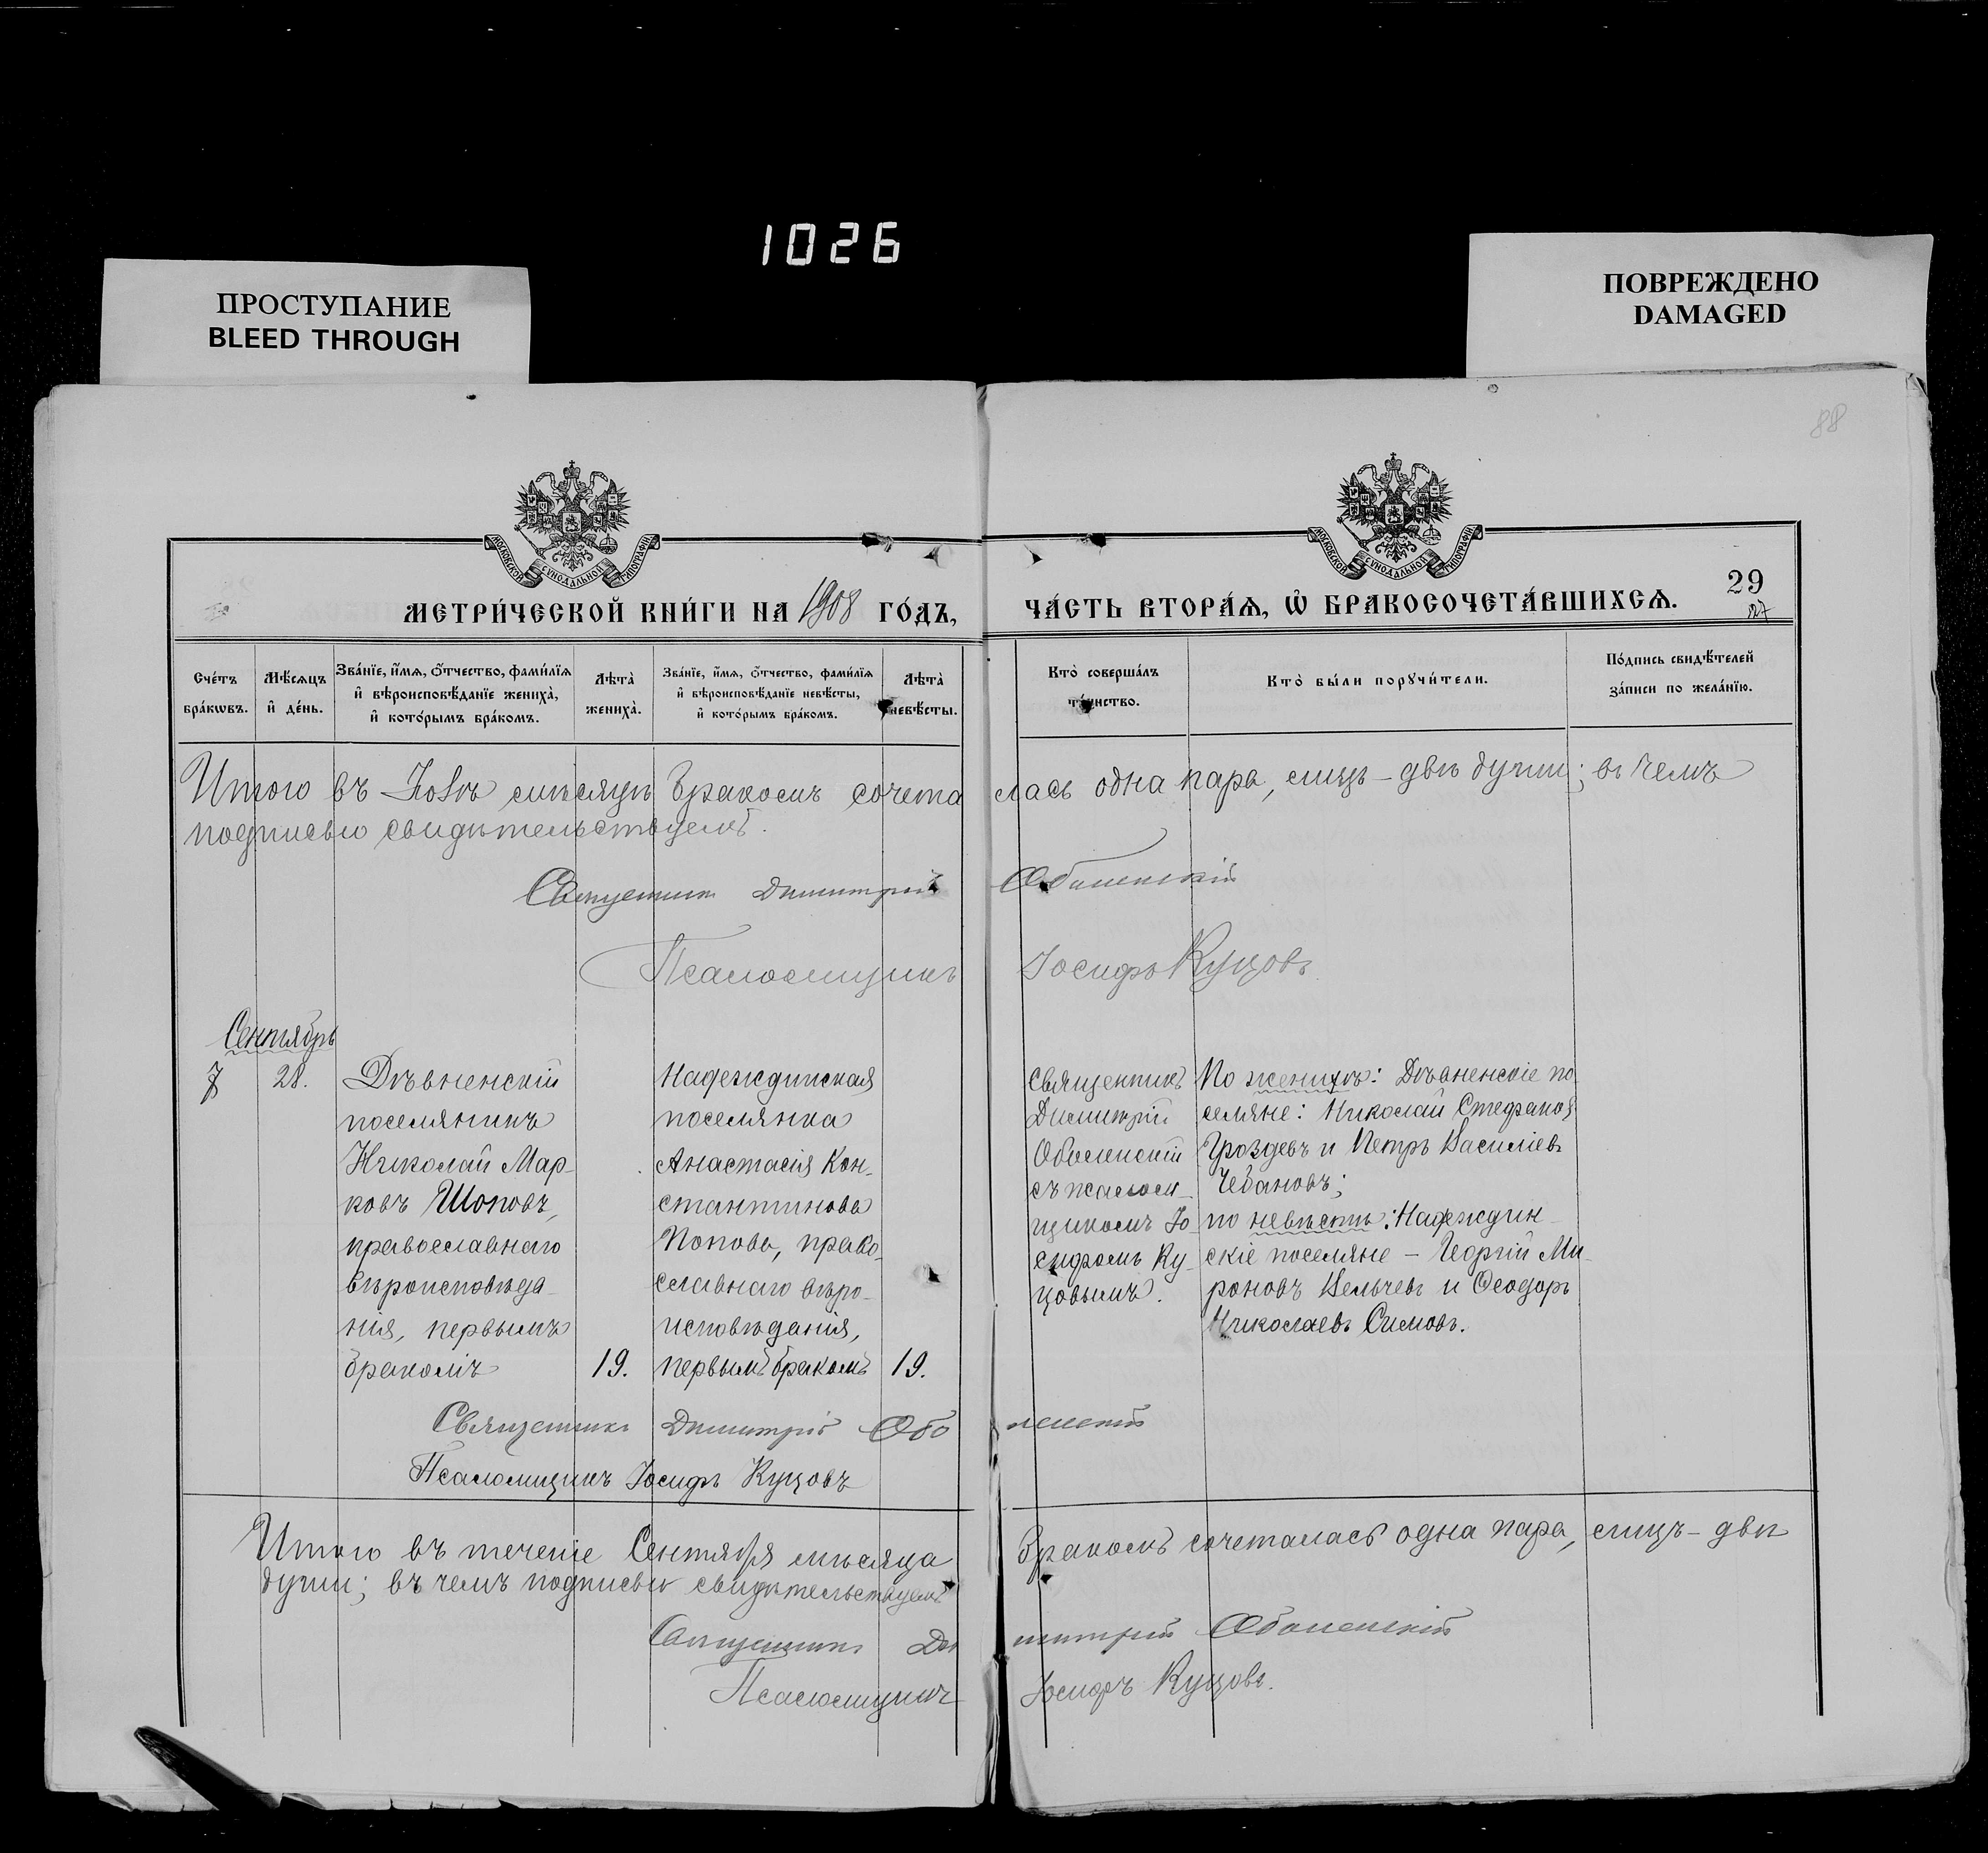 1026
ПРОСТУПАНИЕ
BLEED THROUGH
ПОВРЕЖДЕНО
DAMAGED
88
МОСКОВСКОЙ СѴНОДАЛЬНОЙ ТИПОГРАФІИ
МОСКОВСКОЙ СѴНОДАЛЬНОЙ ТИПОГРАФІИ
МЕТРИ́ЧЕСКОЙ КНИ́ГИ НА 1908 ГО́ДЪ,
ЧА́СТЬ ВТОРА́Ѧ, Ѡ҆ БРАКОСОЧЕТА́ВШИХСѦ.
29
Сче́тъ бра́кѡвъ.
Мѣ́сѧцъ и҆ де́нь.
Зва́нїе, и҆́мѧ, ѻ҆́тчество, фами́лїѧ и҆ вѣроисповѣ́данїе жениха̀, и҆ кото́рымъ бра́комъ.
Лѣта̀ жениха̀.
Зва́нїе, и҆́мѧ, ѻ҆́тчество, фами́лїѧ и҆ вѣроисповѣ́данїе невѣ́сты, и҆ кото́рымъ бра́комъ.
Лѣта̀ невѣ́сты.
Кто̀ соверша́лъ та́инство.
Кто̀ бы́ли порꙋчи́тели.
По́дпись свидѣ́телей за́писи по жела́нїю.
Итого въ мѣсяцѣ бракомъ сочеталась одна пара, лицъ – двѣ души; въ чемъ
подписью свидѣтельствуемъ.
Священникъ Димитрій Оболенскій
Псаломщикъ Іосифъ Куцовъ
Сентябрь
7
28.
Дѣвненскій
поселянинъ
Николай Мар-
ковъ Шоповъ,
православнаго
вѣроисповѣда-
нія, первымъ
бракомъ
19.
Надеждинская
поселянка
Анастасія Кон-
стантинова
Попова, право-
славнаго вѣро-
исповѣданія,
первымъ бракомъ
19.
Священникъ
Димитрій
Оболенскій
съ псалом-
щикомъ Іо-
сифомъ Ку-
цовымъ.
По женихѣ: Дѣвненскіе по
селяне: Николай Стефановъ
Гроздевъ и Петръ Василіевъ
Чебановъ;
по невѣстѣ: Надеждин-
скіе поселяне – Георгій Ми-
роновъ Вельчевъ и Ѳеодоръ
Николаевъ Симовъ.
Священникъ Димитрій Оболенскій
Псаломщикъ Іосифъ Куцовъ
Итого въ теченіе Сентября мѣсяца бракомъ сочеталась одна пара, лицъ – двѣ
души; въ чемъ подписью свидѣтельствуемъ
Священникъ Димитрій Оболенскій
Псаломщикъ Іосифъ Куцовъ.